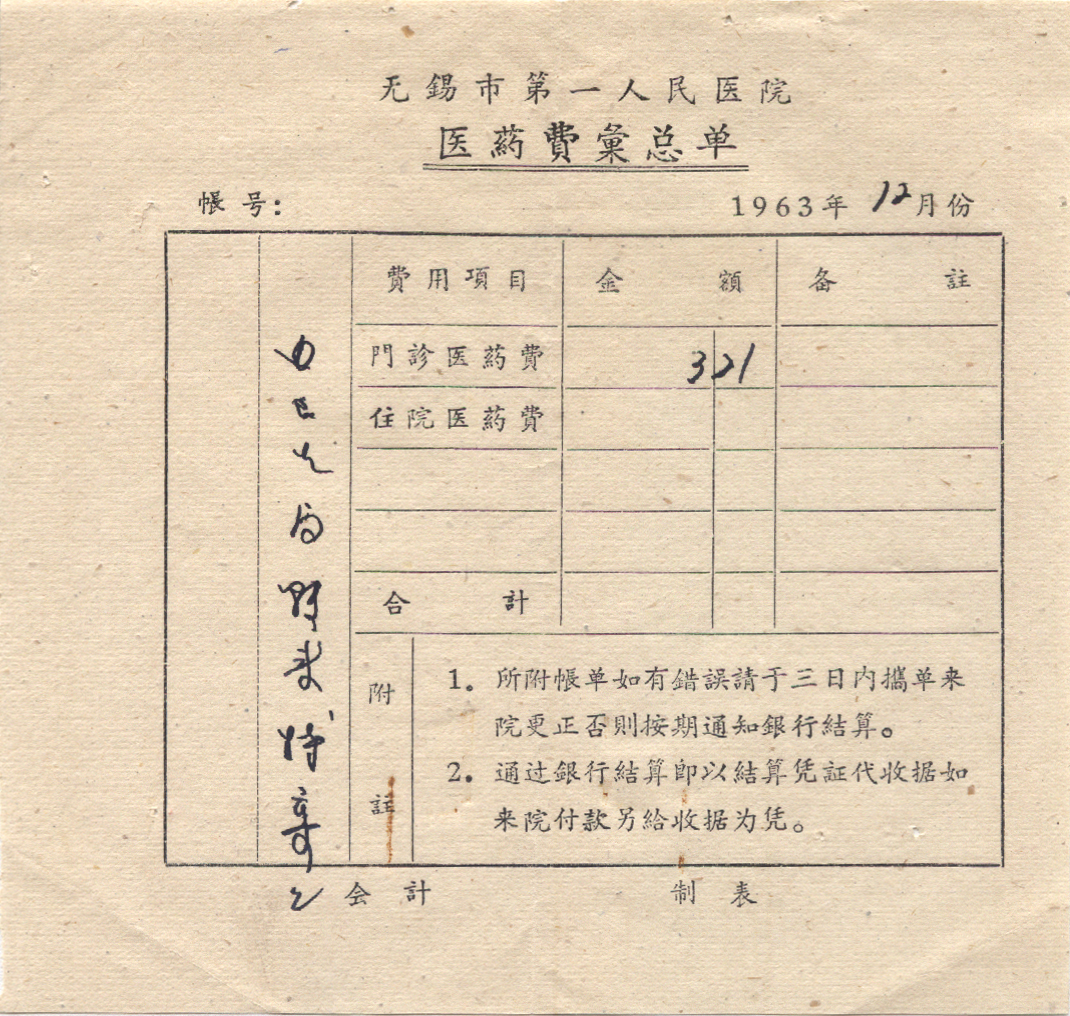 无錫市第一人民医院
医药費彙总单
帳号: 1963年12月份
費用項目 金額 备註
門診医药費 321
住院医药費
合計
附註
1。所附帳单如有錯誤請于三日内攜单来
院更正否則按期通知銀行結算。
2。通过銀行結算即以結算凭証代收据如
来院付款另給收据为凭。
会計 制表